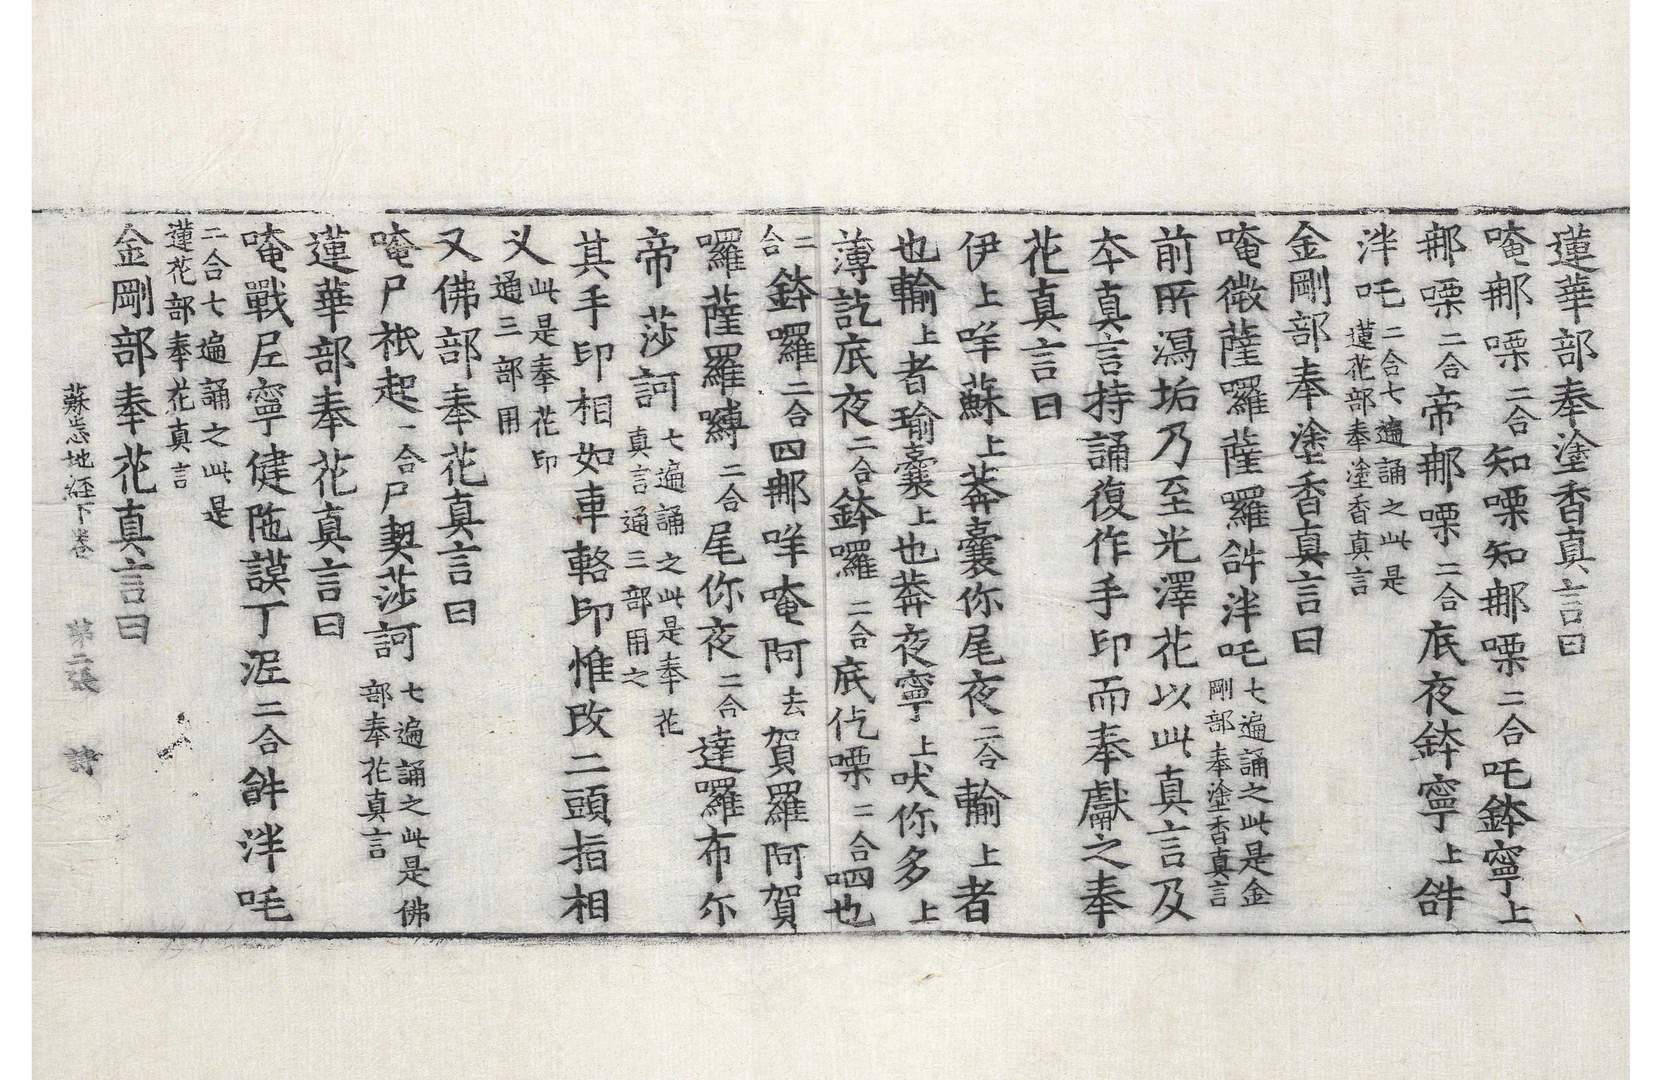 蓮華部奉塗香真言曰
唵那㗚二合知㗚知那㗚二合吒鉢寧上
那㗚二合帝那㗚二合底夜鉢寧上𤙖
泮吒二合七遍誦之此是蓮花部奉塗香真言
金剛部奉塗香真言曰
唵微薩囉薩囉𤙖泮吒七遍誦之此是金剛部奉塗香真言
前所瀉垢乃至光澤花以此真言及
本真言持誦復作手印而奉獻之奉
花真言曰
伊上咩蘇上莾囊你尾夜二合輸上者
也輸上者瑜囊上也莾夜寧上吠你多上
薄訖底夜二合鉢囉二合底仡㗚二合呬也
二合鉢囉二合四那咩唵阿去賀羅阿賀
囉薩羅嚩二合尾你夜二合達囉布尒
帝莎訶七遍誦之此是奉花真言通三部用之
其手印相如車輅印惟改二頭指相
义此是奉花印通三部用
又佛部奉花真言曰
唵尸祇起一合尸契莎訶七遍誦之此是佛部奉花真言
蓮華部奉花真言曰
唵戰𡰱寧健陁謨丁泥二合𤙖泮吒
二合七遍誦之此是蓮花部奉花真言
金剛部奉花真言曰
蘇悉地経下卷 第二張 詩